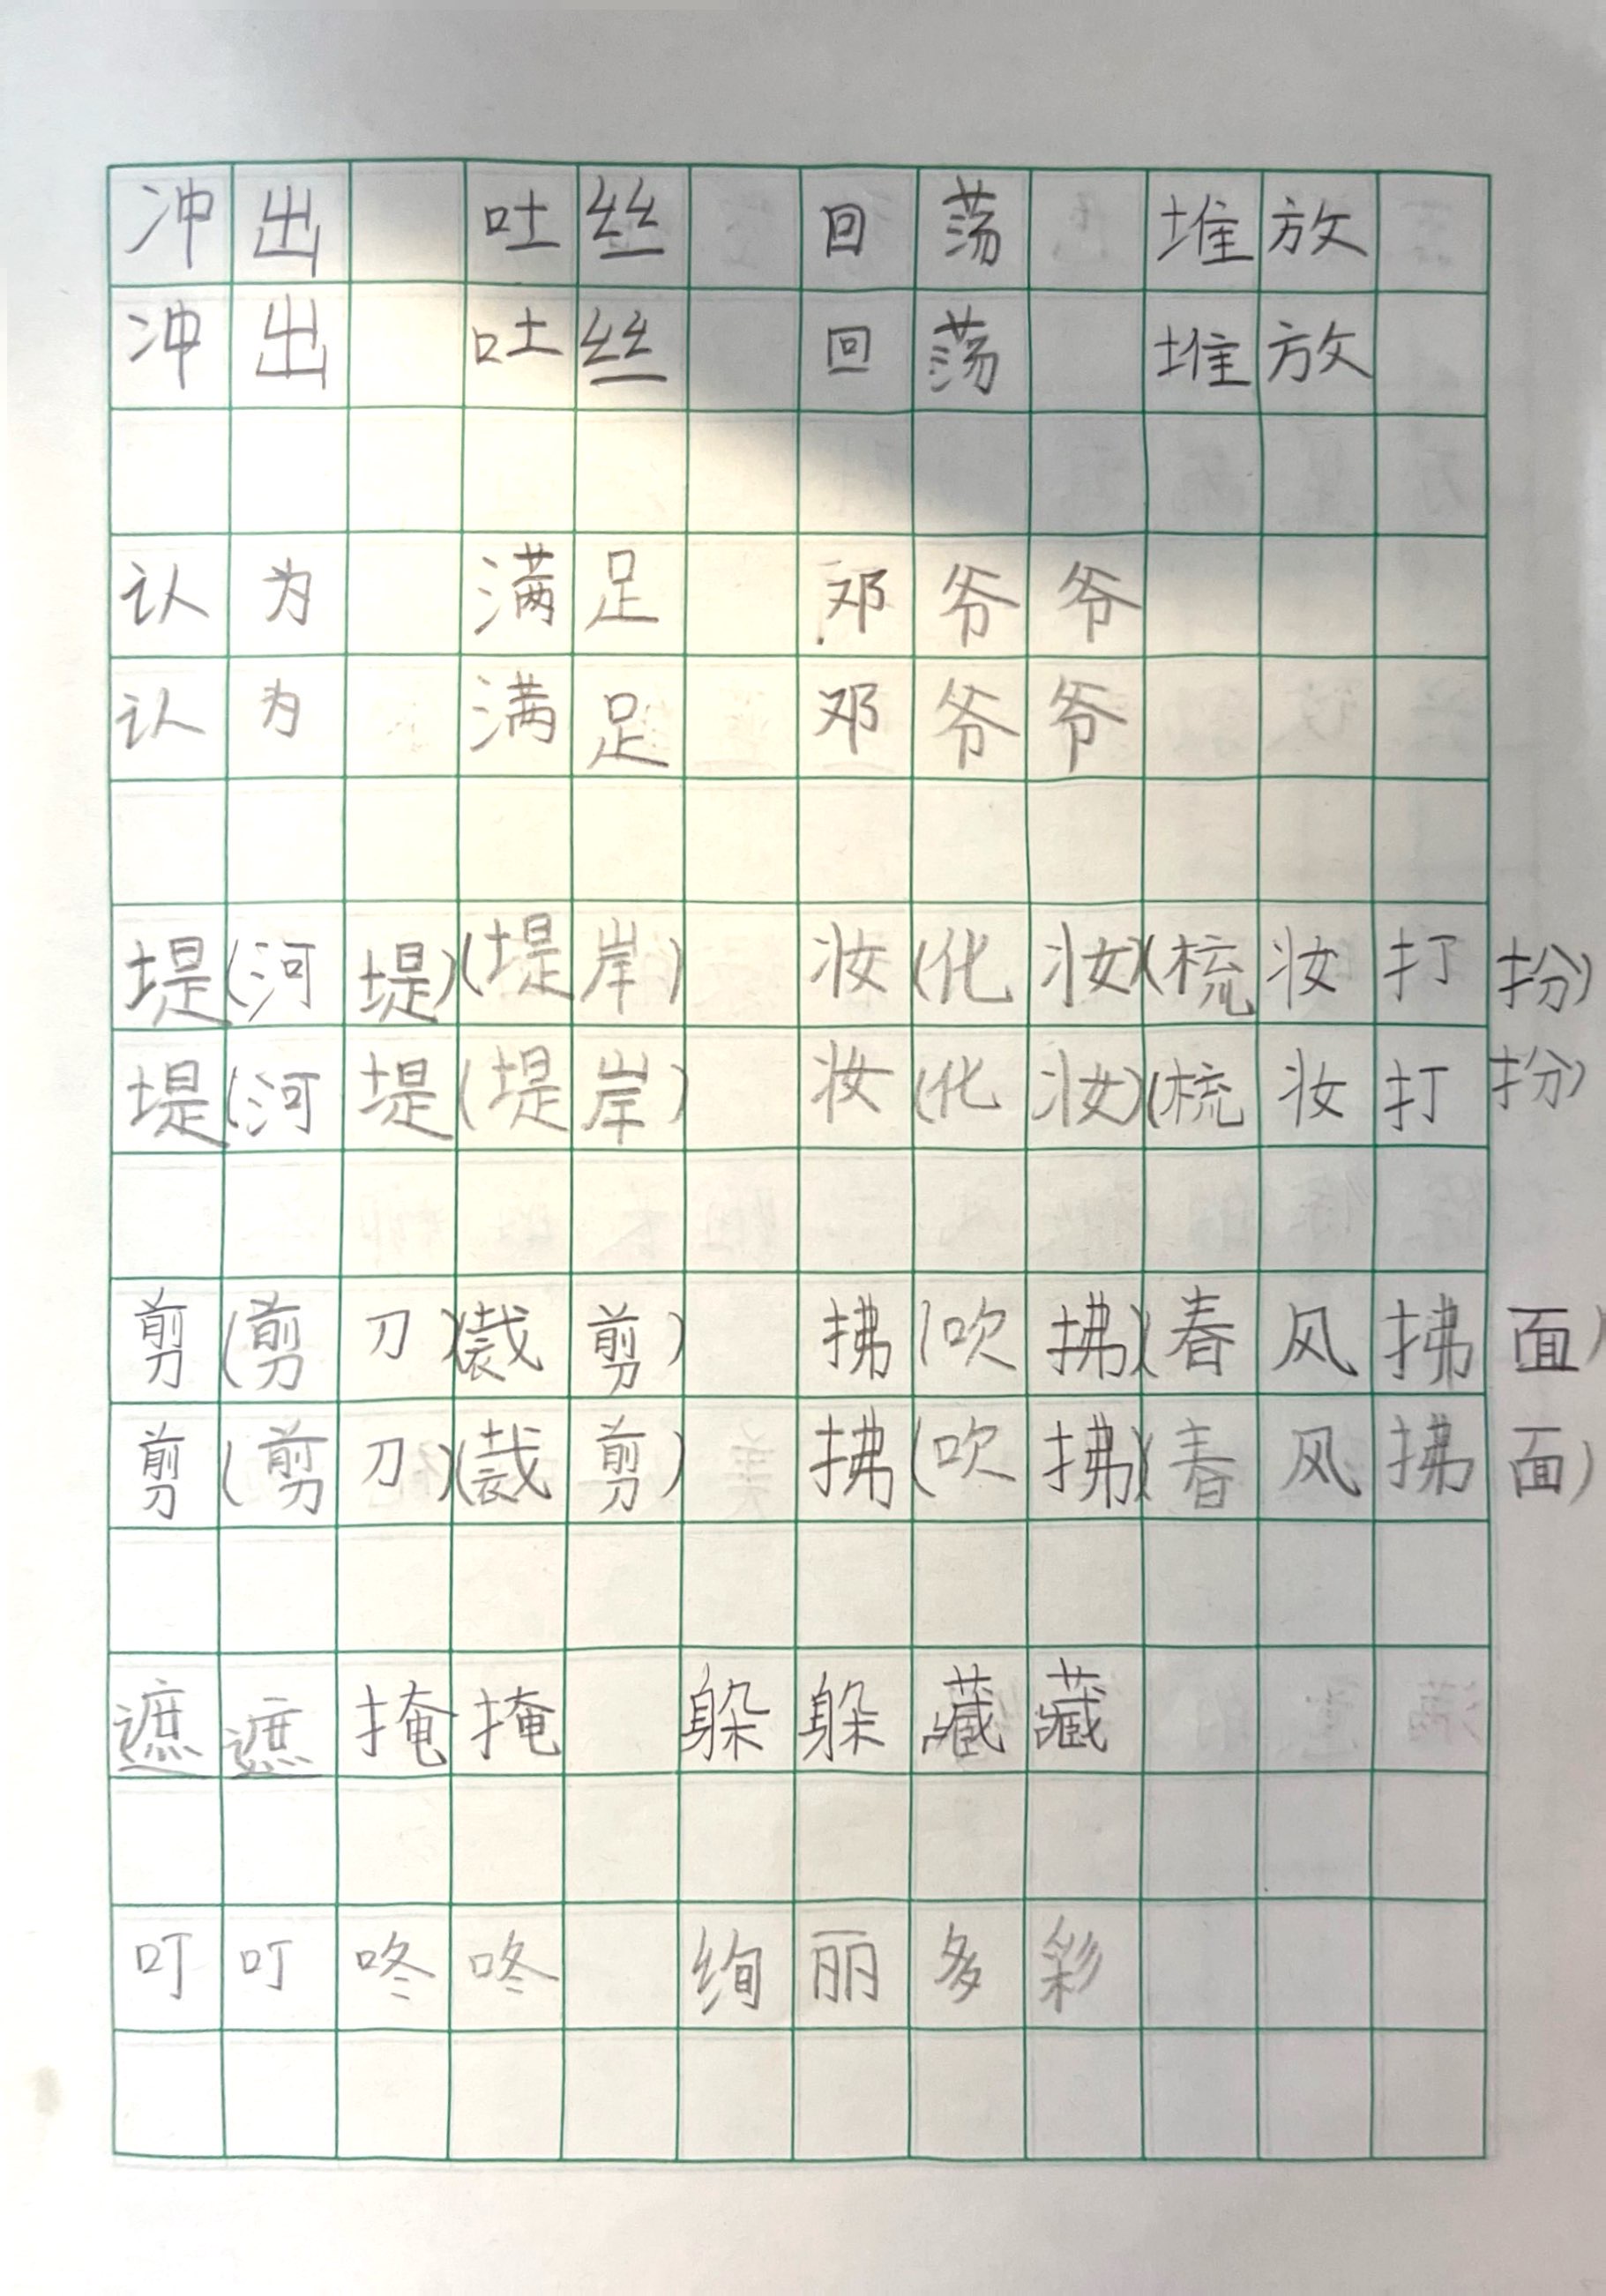 冲出 吐丝 回荡 堆放
冲出 吐丝 回荡 堆放
认为 满足 邓爷爷
认为 满足 邓爷爷
堤(河堤)(堤岸) 妆(化妆)(梳妆打扮)
堤(河堤(堤岸) 妆(化妆)(梳妆打扮)
剪(剪刀)(裁剪) 拂(吹拂)(春风拂面)
剪(剪刀)(裁剪) 拂(吹拂)(春风拂面)
遮遮掩掩 躲躲藏藏
叮叮咚咚 绚丽多彩